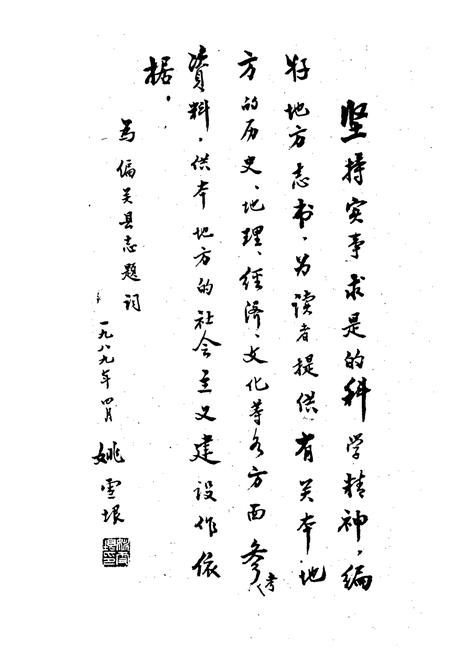 坚持实事求是的科学精神，编
好地方志书，为读者提供有关本地
方的历史、地理、经济、文化等各方面参考
资料，供本地方的社会主义建设作依
据。
为偏关县志题词
一九八九年四月
姚雪垠